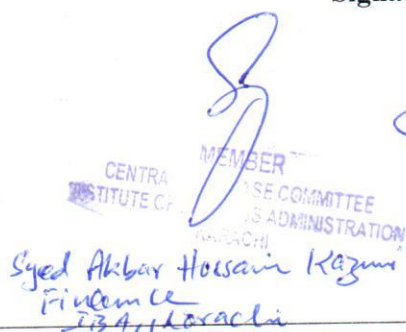 Signa
MEMBER
CENTRA SE COMMITTEE
STITUTE OF S ADMINISTRATION
KARACHI
Syed Akbar Hossain Kazmi
Finance
IBA, Karachi